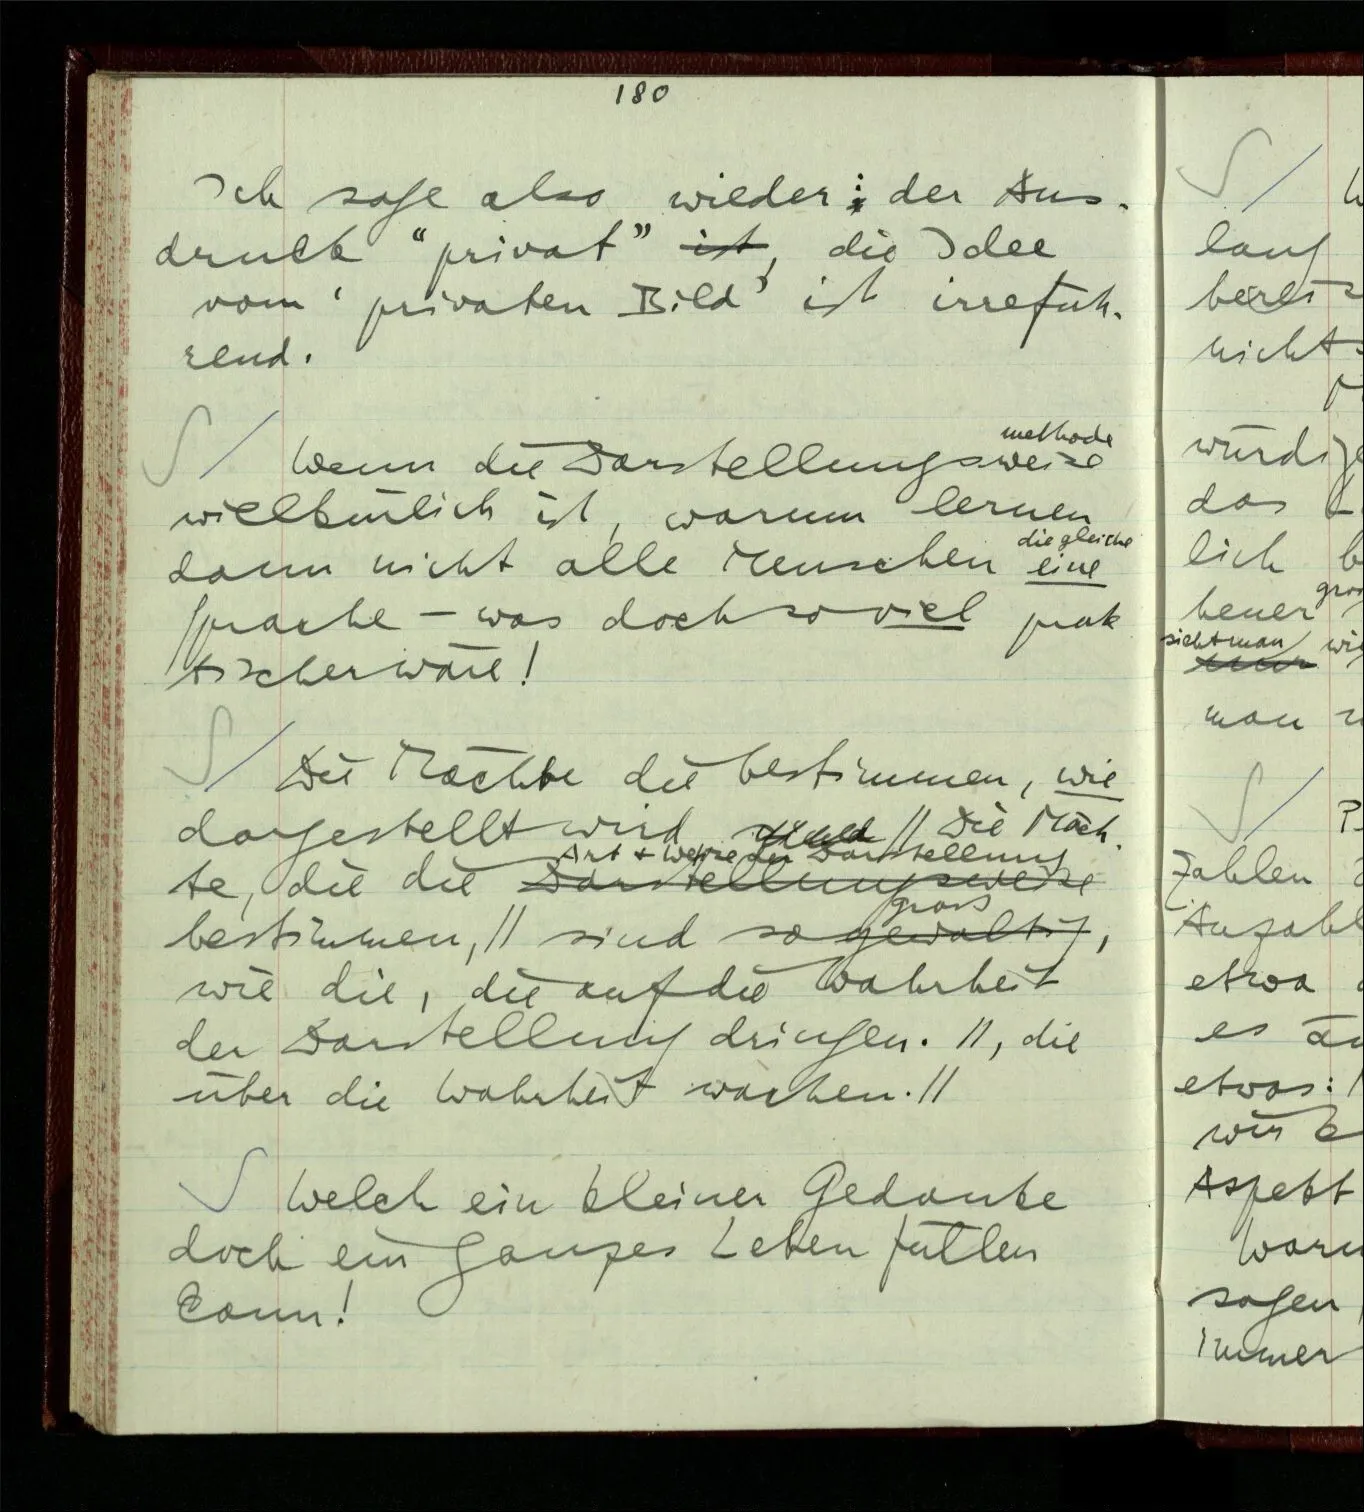 180
Ich sage also wieder: der Aus-
druck "privat" ist, die Idee
vom 'privaten Bild' ist irrefüh-
rend.
methode
S / Wenn die Darstellungsweise
willkürlich ist, warum lernen
die gleiche
dann nicht alle Menschen eine
Sprache – was doch so viel prak
tischer wäre!
S / Die Mächte die bestimmen, wie
dargestellt wird // Die Mäch-
Art + Weise der Darstellung
te, die die Darstellungsweise
gross
bestimmen, // sind so gewaltig,
wie die, die auf die Wahrheit
der Darstellung dringen. //, die
über die Wahrheit wachen. //
S Welch ein kleiner Gedanke
doch ein ganzes Leben füllen
kann!
S /
lang
nicht
würdige
das
lich
heuer
sieht man
man
S /
Zahlen
Anzahl
etwa
es
etwas:
wir
Aspekt
Waru
sagen
immer